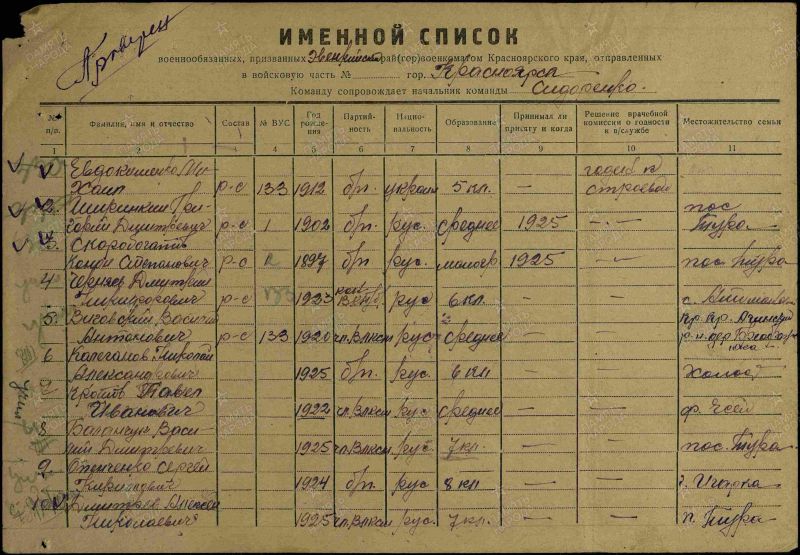 Проверен
ИМЕННОЙ СПИСОК
военнообязанных, призванных Эвенкийским рай(гор)военкоматом Красноярского края, отправленных
в войсковую часть № гор. Красноярск
Команду сопровождает начальник команды Сидоренко.
№ п/п. Фамилия, имя и отчество Состав № ВУС Год рождения Партийность Национальность Образование Принимал ли присягу и когда Решение врачебной комиссии о годности к в/службе Местожительство семьи
1 2 3 4 5 6 7 8 9 10 11
Евдокименко Ми- годен к
хаил р-с 133 1912 бп. украин 5 кл. — строевой
2. Ширинкин Гри- пос.
горий Дмитриевич р-с 1 1902 бп. рус. среднее 1925 —"— Тура
3. Скоробогатов
Степанович р-с 1897 бп рус. малогр. 1925 —"— пос. Тура
4 Дмитрий
Никифорович р-с 133 1923 рус 6 кл. — —"— с.
5. Василий Кр. Кр.
Антонович р-с 133 1920 чл. Влксм рус среднее — —"— р-н дер.
6 Николай
Александрович 1925 бп. рус 6 кл — —"—
7 Кротов Павел
Иванович 1922 чл. Влксм рус среднее — —"— ф. Ессей
8 Баланчук Васи-
лий Дмитриевич 1925 чл. Влксм рус 7 кл. — —"— пос. Тура
9 Сергей
1924 бп. рус 8 кл — —"— г. Игарка
10 Дмитриев Алексей
Николаевич 1925 чл. Влксм рус. 7 кл. — —"— п. Тура